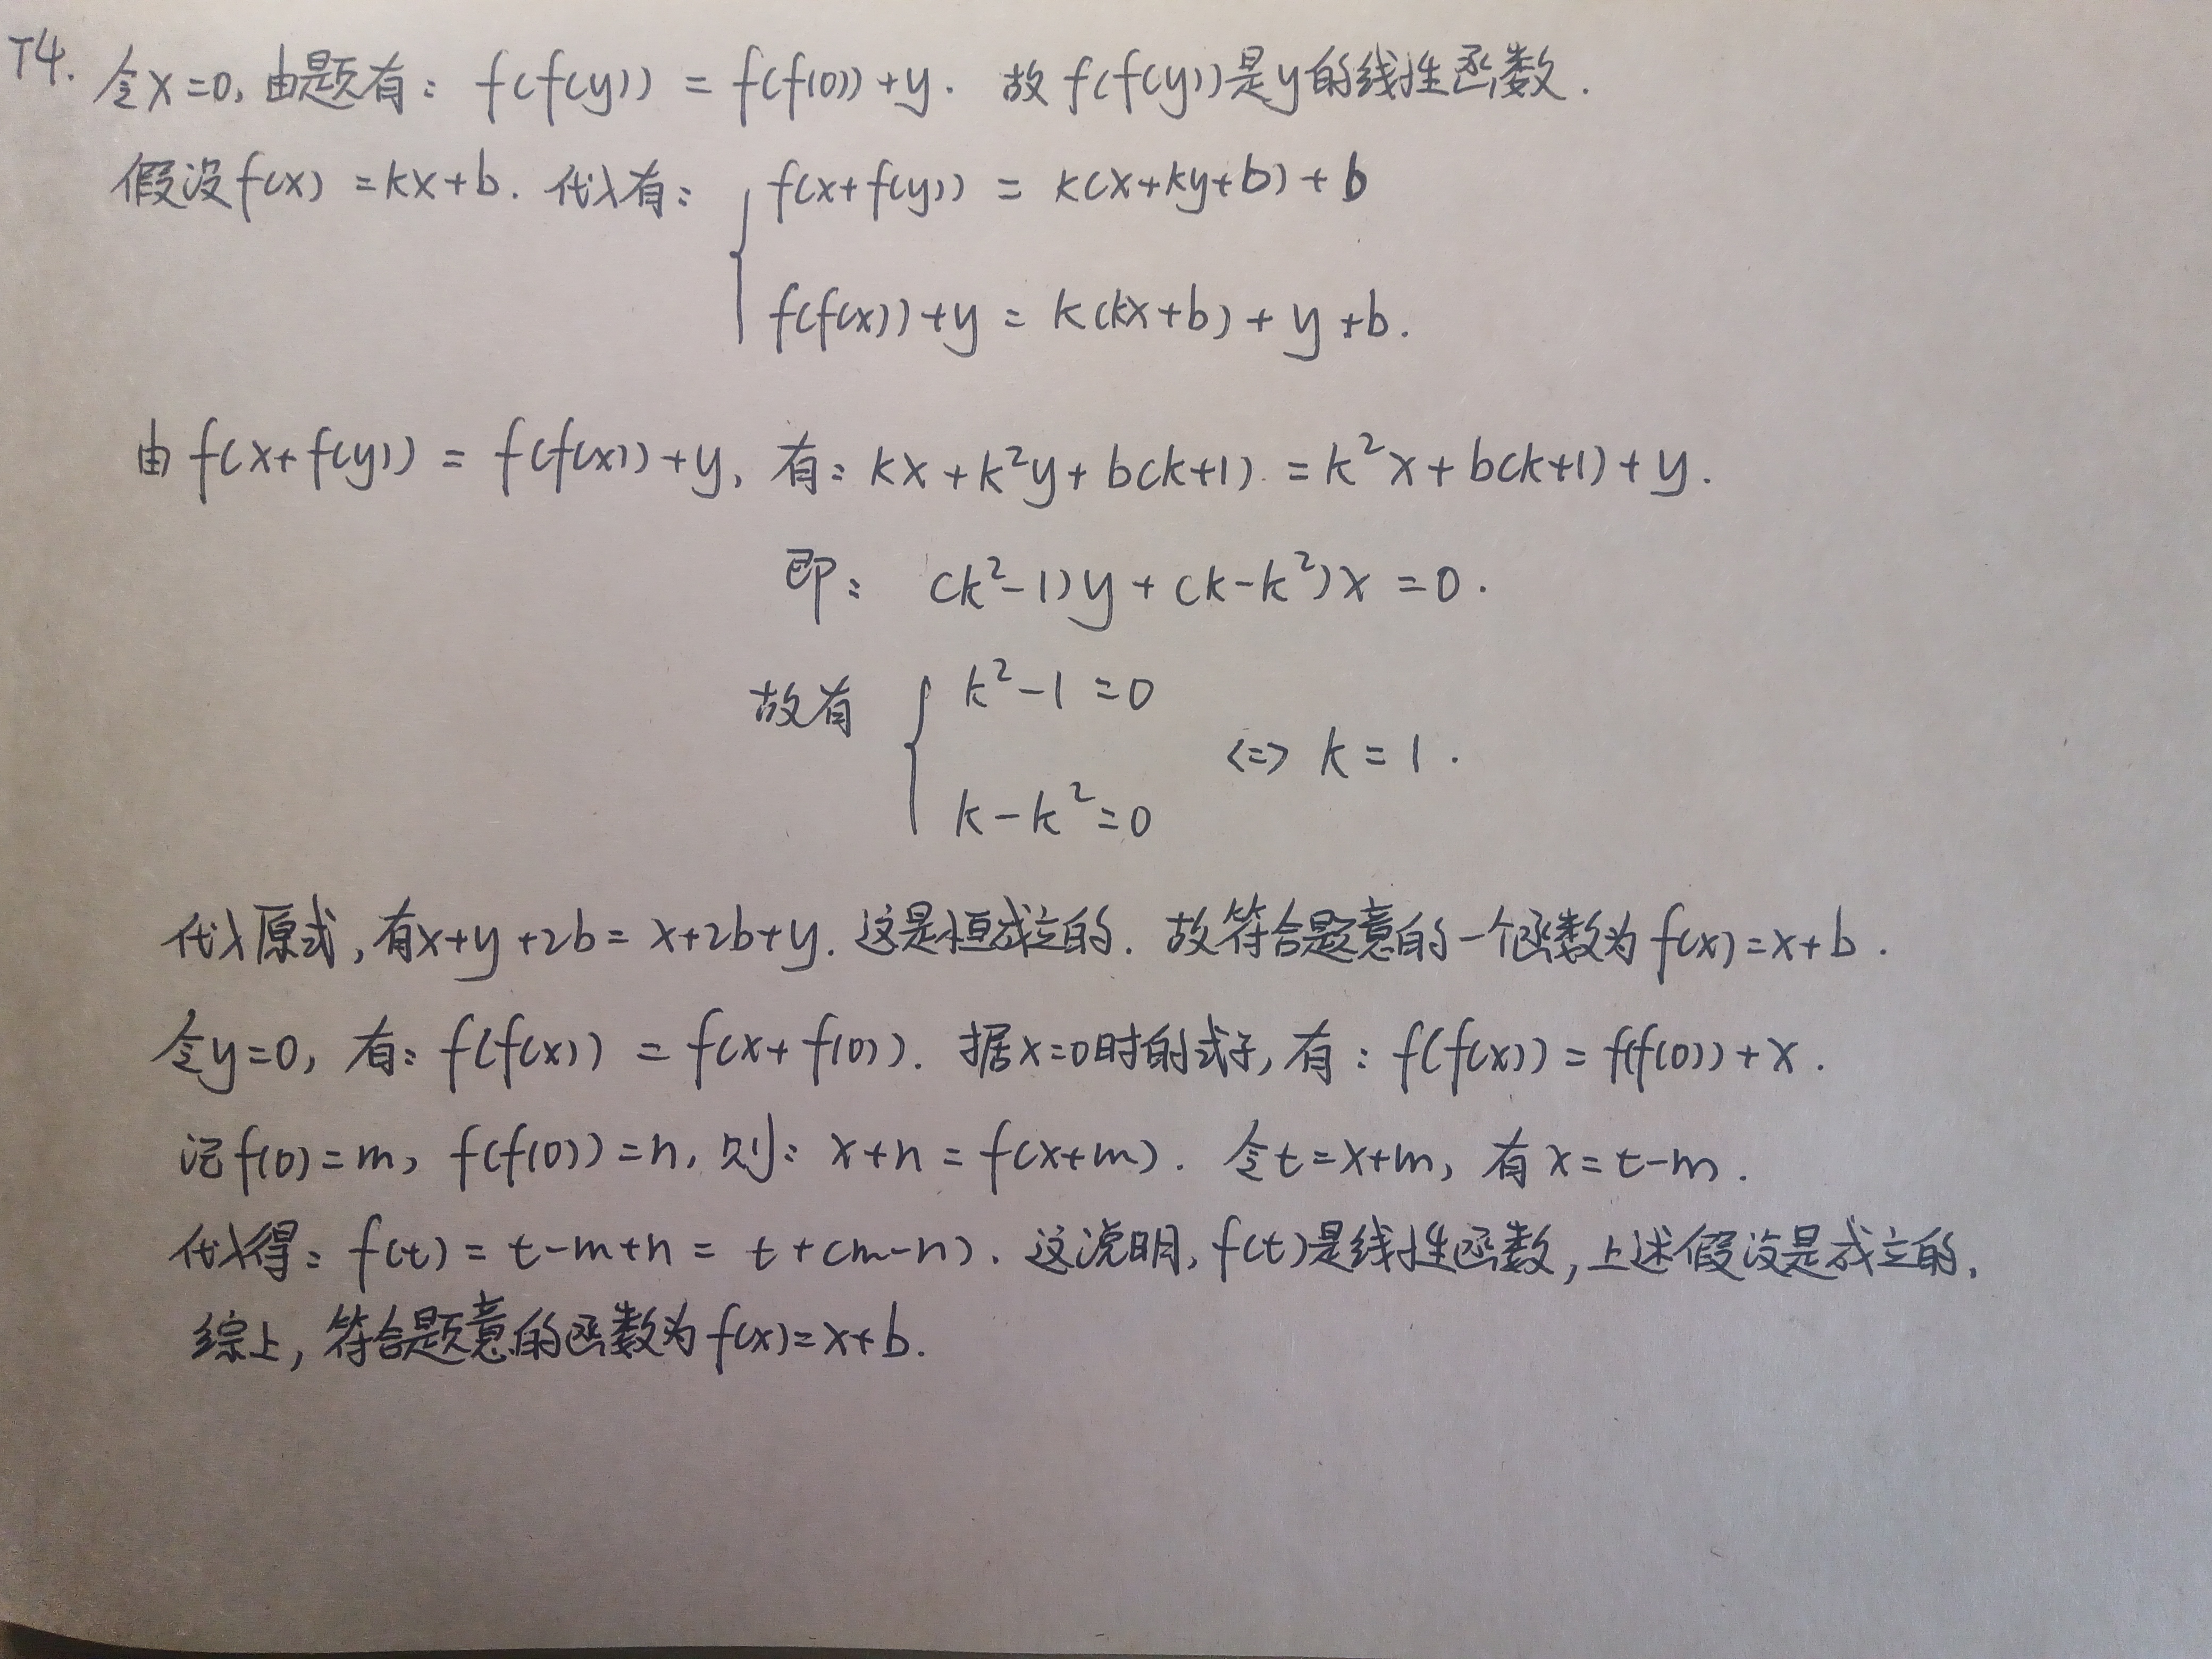 T4. 令x=0, 由题有: f(f(y)) = f(f(0))+y. 故f(f(y))是y的线性函数.
假设f(x)=kx+b. 代入有: { f(x+f(y)) = k(x+ky+b)+b
f(f(x))+y = k(kx+b)+y+b.
由f(x+f(y)) = f(f(x))+y, 有: kx+k²y+b(k+1) = k²x+b(k+1)+y.
即: (k²-1)y+(k-k²)x=0.
故有 { k²-1=0
⇔ k=1.
k-k²=0
代入原式,有x+y+2b=x+2b+y. 这是恒成立的. 故符合题意的一个函数为f(x)=x+b.
令y=0, 有: f(f(x)) = f(x+f(0)). 据x=0时的式子,有: f(f(x))=f(f(0))+x.
记f(0)=m, f(f(0))=n, 则: x+n=f(x+m). 令t=x+m, 有x=t-m.
代入得: f(t)=t-m+n=t+(m-n). 这说明, f(t)是线性函数,上述假设是成立的.
综上, 符合题意的函数为f(x)=x+b.